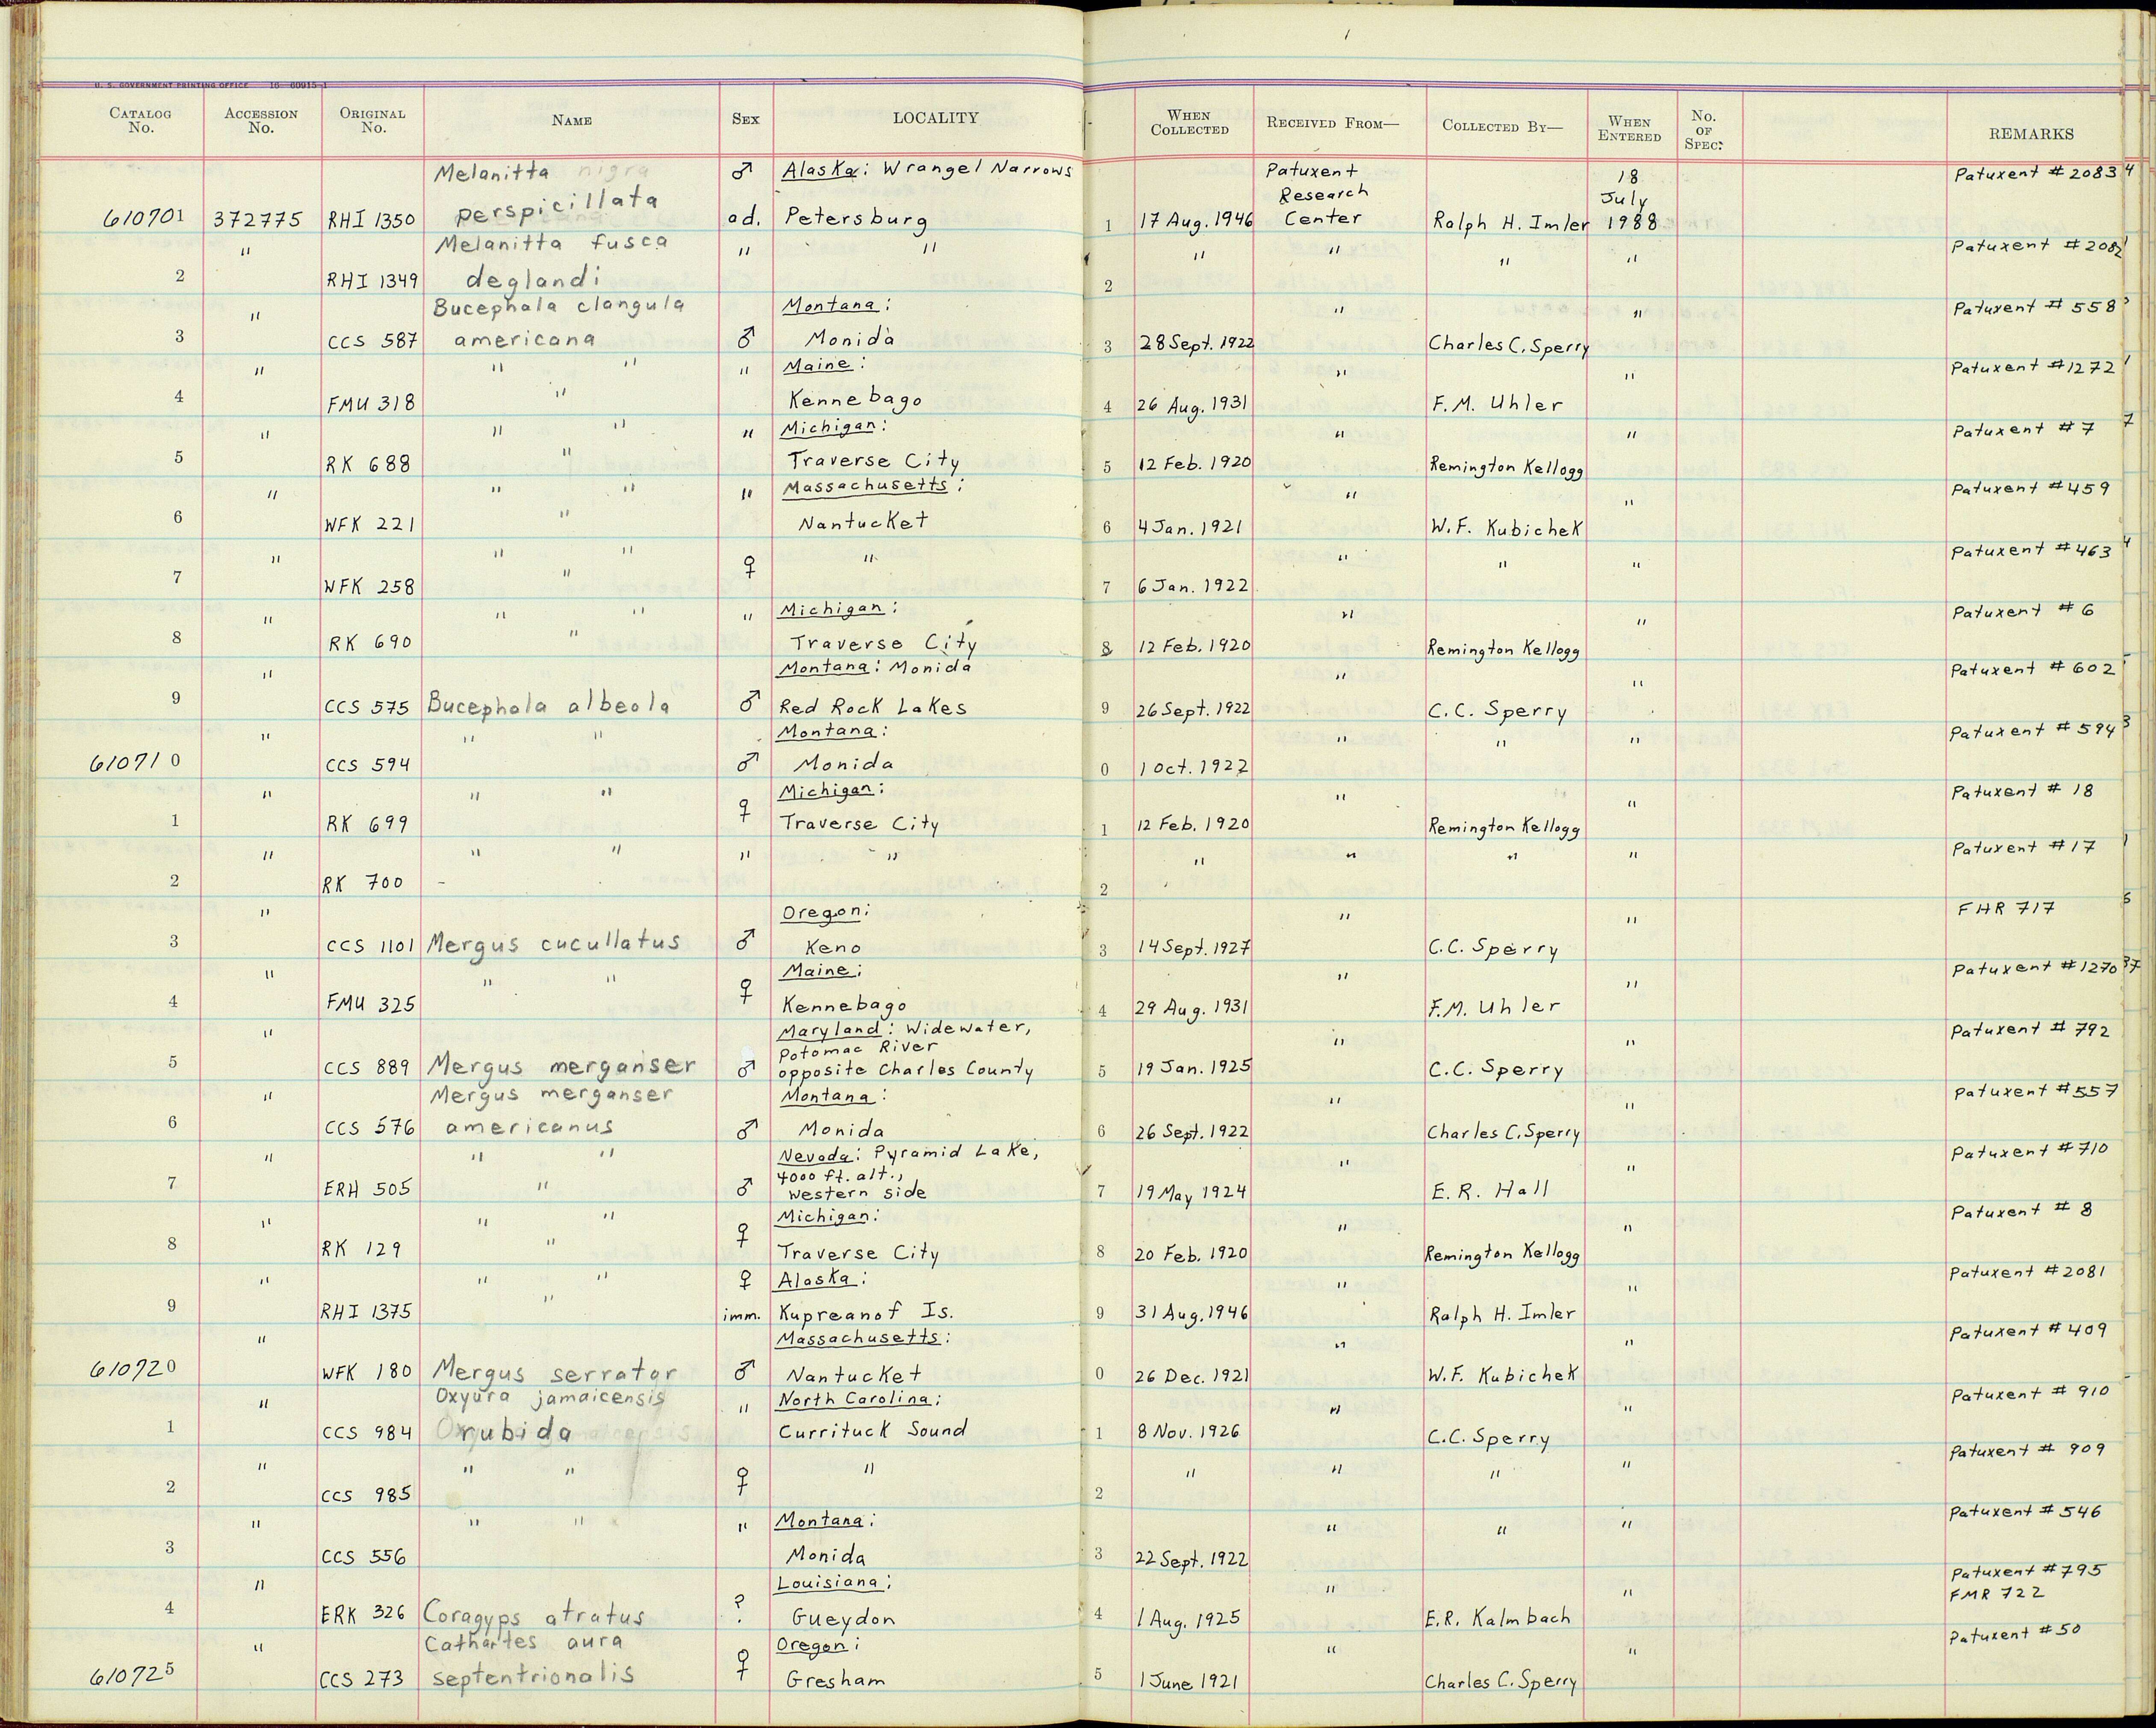 U. S. GOVERNMENT PRINTING OFFICE 16—60915-1
CATALOG No. ACCESSION No. ORIGINAL No. NAME SEX LOCALITY WHEN COLLECTED RECEIVED FROM— COLLECTED BY— WHEN ENTERED No. OF SPEC. REMARKS
Melanitta nigra ♂ Alaska: Wrangel Narrows Patuxent 18 Patuxent # 2083
Research July
610701 372775 RHI 1350 perspicillata ad. Petersburg 1 17 Aug. 1946 Center Ralph H. Imler 1988
" Melanitta fusca " " " " " " Patuxent # 2082
2 RHI 1349 deglandi 2
" Bucephala clangula Montana: " " Patuxent # 558
3 CCS 587 americana ♂ Monida 3 28 Sept. 1922 Charles C. Sperry
" " " " Maine: " " Patuxent #1272
4 FMU 318 " Kennebago 4 26 Aug. 1931 F.M. Uhler
" " " " Michigan: " " Patuxent # 7
5 RK 688 " Traverse City 5 12 Feb. 1920 Remington Kellogg
" " " " Massachusetts: " " Patuxent #459
6 WFK 221 " Nantucket 6 4 Jan. 1921 W.F. Kubichek
" " " ♀ " " " " Patuxent #463
7 WFK 258 " 7 6 Jan. 1922
" " " " Michigan: " " Patuxent # 6
8 RK 690 " Traverse City 8 12 Feb. 1920 Remington Kellogg
" Montana: Monida " " Patuxent # 602
9 CCS 575 Bucephala albeola ♂ Red Rock Lakes 9 26 Sept. 1922 C.C. Sperry
" " " Montana: " " " Patuxent # 594
610710 CCS 594 ♂ Monida 0 1 Oct. 1922
" " " ♀ Michigan: " " Patuxent # 18
1 RK 699 Traverse City 1 12 Feb. 1920 Remington Kellogg
" " " " " " " " " Patuxent #17
2 RK 700 - 2
" Oregon: " " FHR 717
3 CCS 1101 Mergus cucullatus ♂ Keno 3 14 Sept. 1927 C.C. Sperry
" " " ♀ Maine: " " Patuxent #1270
4 FMU 325 Kennebago 4 29 Aug. 1931 F.M. Uhler
" Maryland: Widewater, " " Patuxent # 792
Potomac River
5 CCS 889 Mergus merganser ♂ opposite Charles County 5 19 Jan. 1925 C.C. Sperry
" Mergus merganser Montana: " " Patuxent #557
6 CCS 576 americanus ♂ Monida 6 26 Sept. 1922 Charles C. Sperry
" " " Nevada: Pyramid Lake, " " Patuxent #710
4000 ft. alt.,
7 ERH 505 " ♂ western side 7 19 May 1924 E.R. Hall
" " " ♀ Michigan: " " Patuxent # 8
8 RK 129 " Traverse City 8 20 Feb. 1920 Remington Kellogg
" " " ♀ Alaska: " " Patuxent #2081
9 RHI 1375 " imm. Kupreanof Is. 9 31 Aug. 1946 Ralph H. Imler
" Massachusetts: " " Patuxent #409
610720 WFK 180 Mergus serrator ♂ Nantucket 0 26 Dec. 1921 W.F. Kubichek
" Oxyura jamaicensis " North Carolina: " " Patuxent # 910
1 CCS 984 rubida Currituck Sound 1 8 Nov. 1926 C.C. Sperry
" " " ♀ " " " " " Patuxent # 909
2 CCS 985 2
" " " " Montana: " " " Patuxent #546
3 CCS 556 Monida 3 22 Sept. 1922
" Louisiana: " " Patuxent #795
4 ERK 326 Coragyps atratus ? Gueydon 4 1 Aug. 1925 E.R. Kalmbach FMR 722
" Cathartes aura ♀ Oregon: " " Patuxent #50
610725 CCS 273 septentrionalis Gresham 5 1 June 1921 Charles C. Sperry